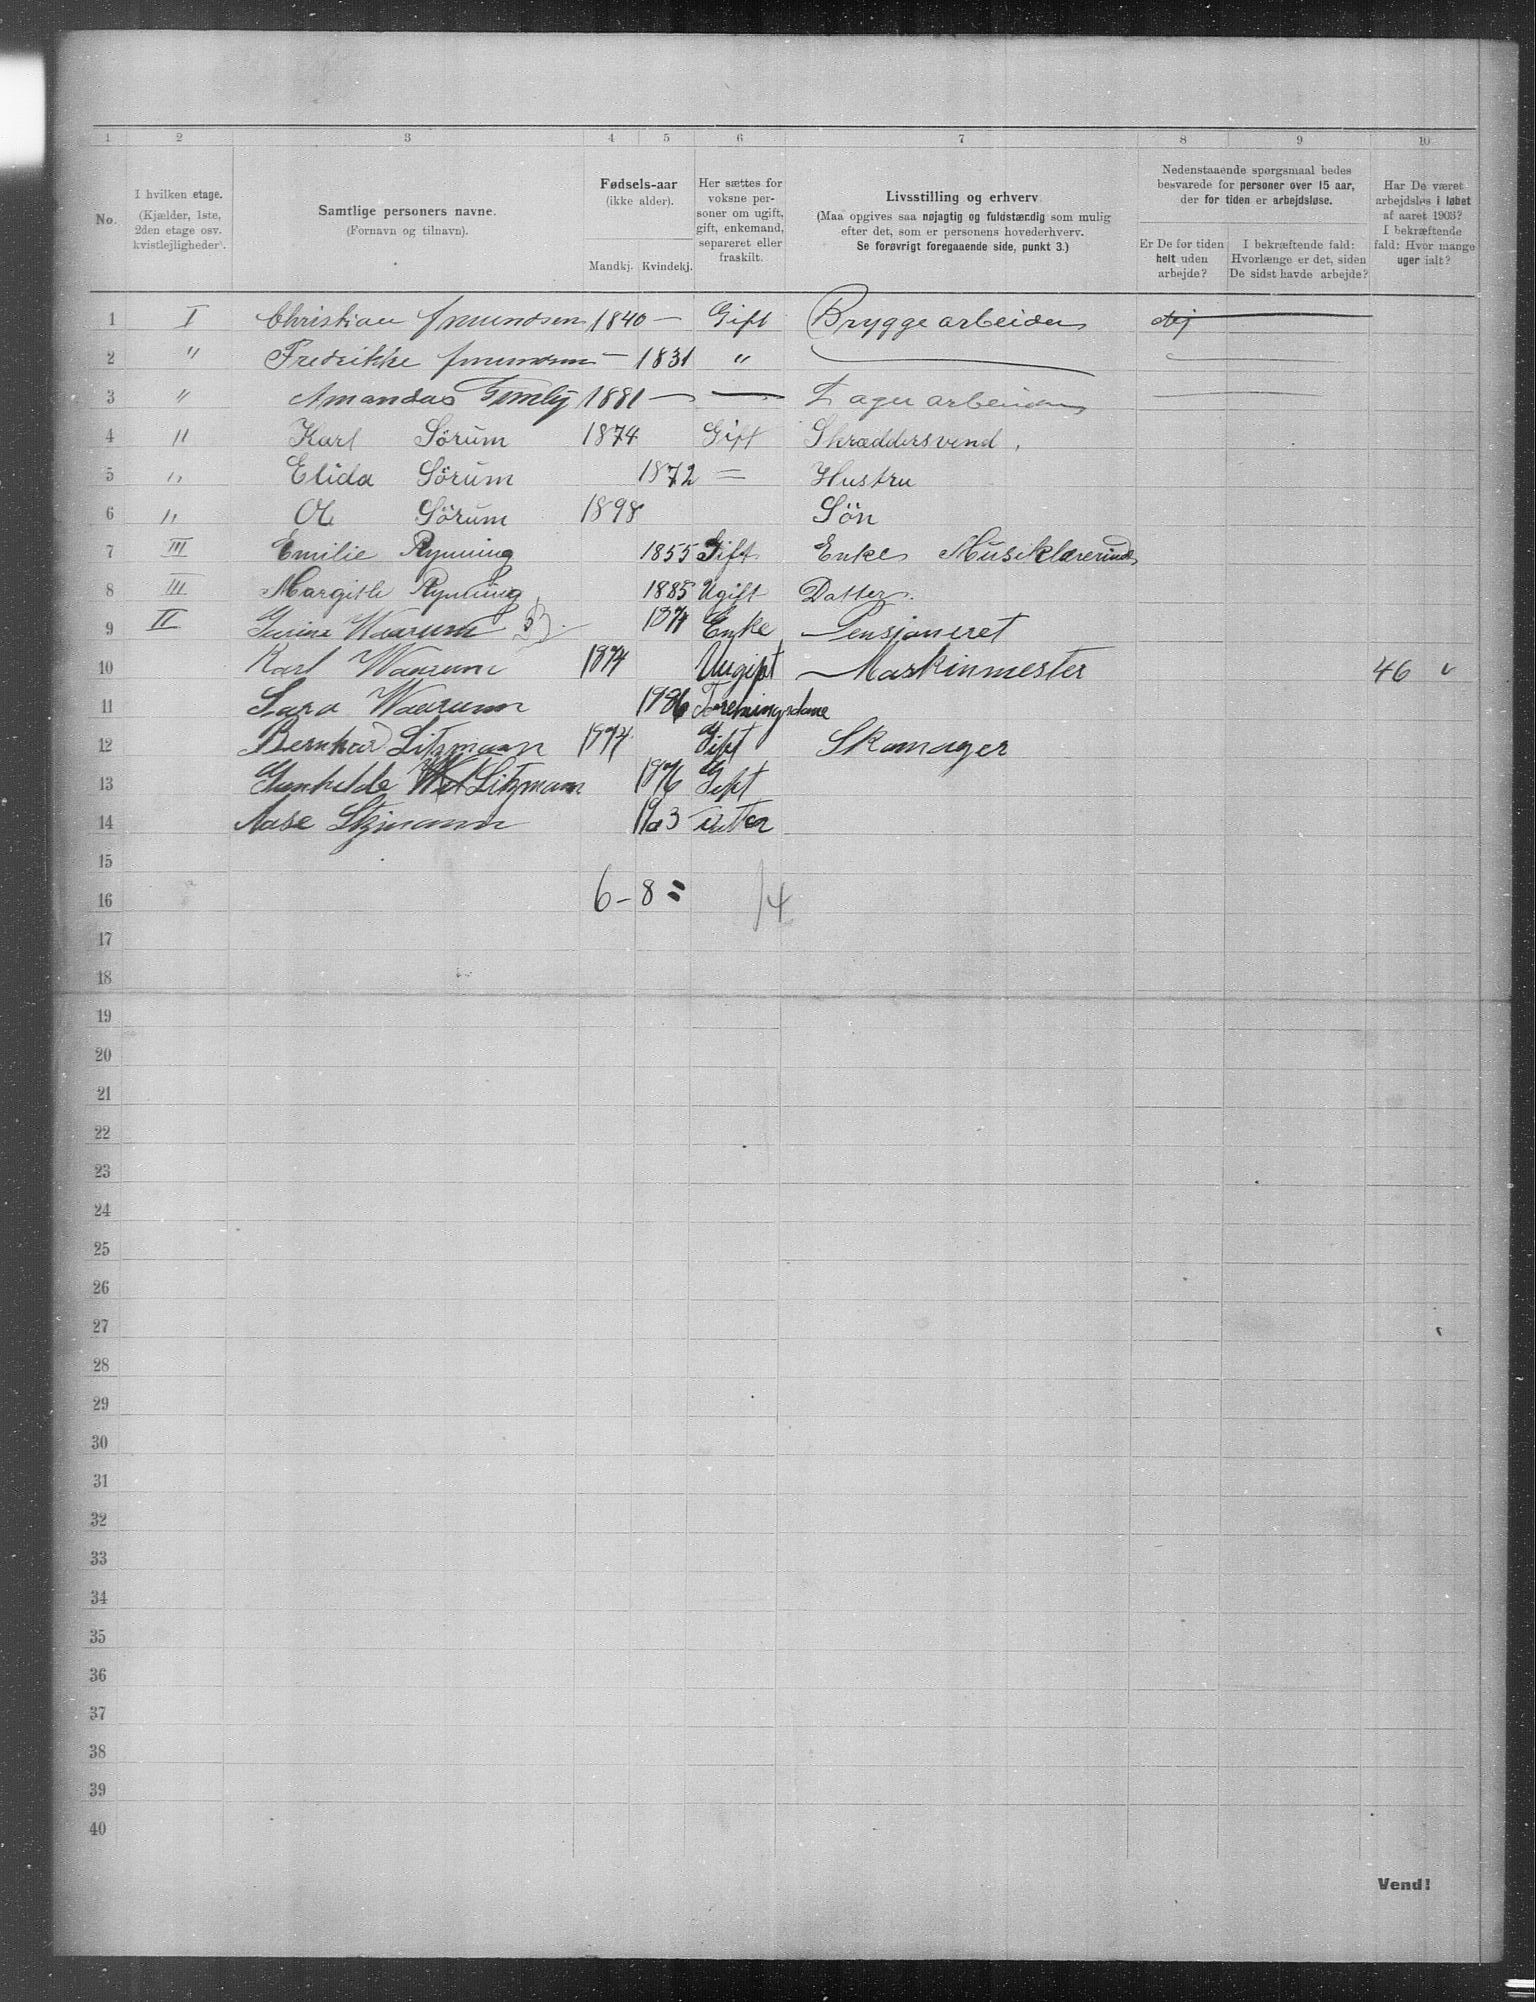 1 2 3 4 5 6 7 8 9 10
No.
I hvilken etage.
(Kjælder, 1ste, 2den etage osv. kvistlejligheder).
Samtlige personers navne.
(Fornavn og tilnavn).
Fødsels-aar
(ikke alder).
Mandkj. Kvindekj.
Her sættes for voksne personer om ugift, gift, enkemand, separeret eller fraskilt.
Livsstilling og erhverv
(Maa opgives saa nøjagtig og fuldstændig som mulig efter det, som er personens hovederhverv.
Se forøvrigt foregaaende side, punkt 3.)
Nedenstaaende spørgsmaal bedes besvarede for personer over 15 aar, der for tiden er arbejdsløse.
Er De for tiden helt uden arbejde?
I bekræftende fald: Hvorlænge er det, siden De sidst havde arbejde?
Har De været arbejdsløs i løbet af aaret 1903? I bekræftende fald: Hvor mange uger ialt?
1 I Christian Amundsen 1840 — Gift Bryggearbeider Nej
2 " Fredrikke Amundsen — 1831 "
3 " Amandus 1881 — — Lagerarbeider
4 " Karl Sörum 1874 Gift Skræddersvend.
5 " Elida Sörum 1872 = Hustru
6 " Ole Sörum 1898 Sön
7 III Emilie Rynning 1855 Gift Enke Musiklærerinde
8 III Margith Rynning 1885 Ugift Datter.
9 II Waarum Enke Pensjoneret
10 Karl Waarum 1874 Uugift Maskinmester 46 v
11 Sara Waarum Foreningsdame
12 Bernhard Litzmann 1874 Gift Skomager
13 Gunhilde Litzmann 1876 Gift
14 Aase Litzmann 1903
15
16 6 - 8 = 14
17
18
19
20
21
22
23
24
25
26
27
28
29
30
31
32
33
34
35
36
37
38
39
40
Vend!